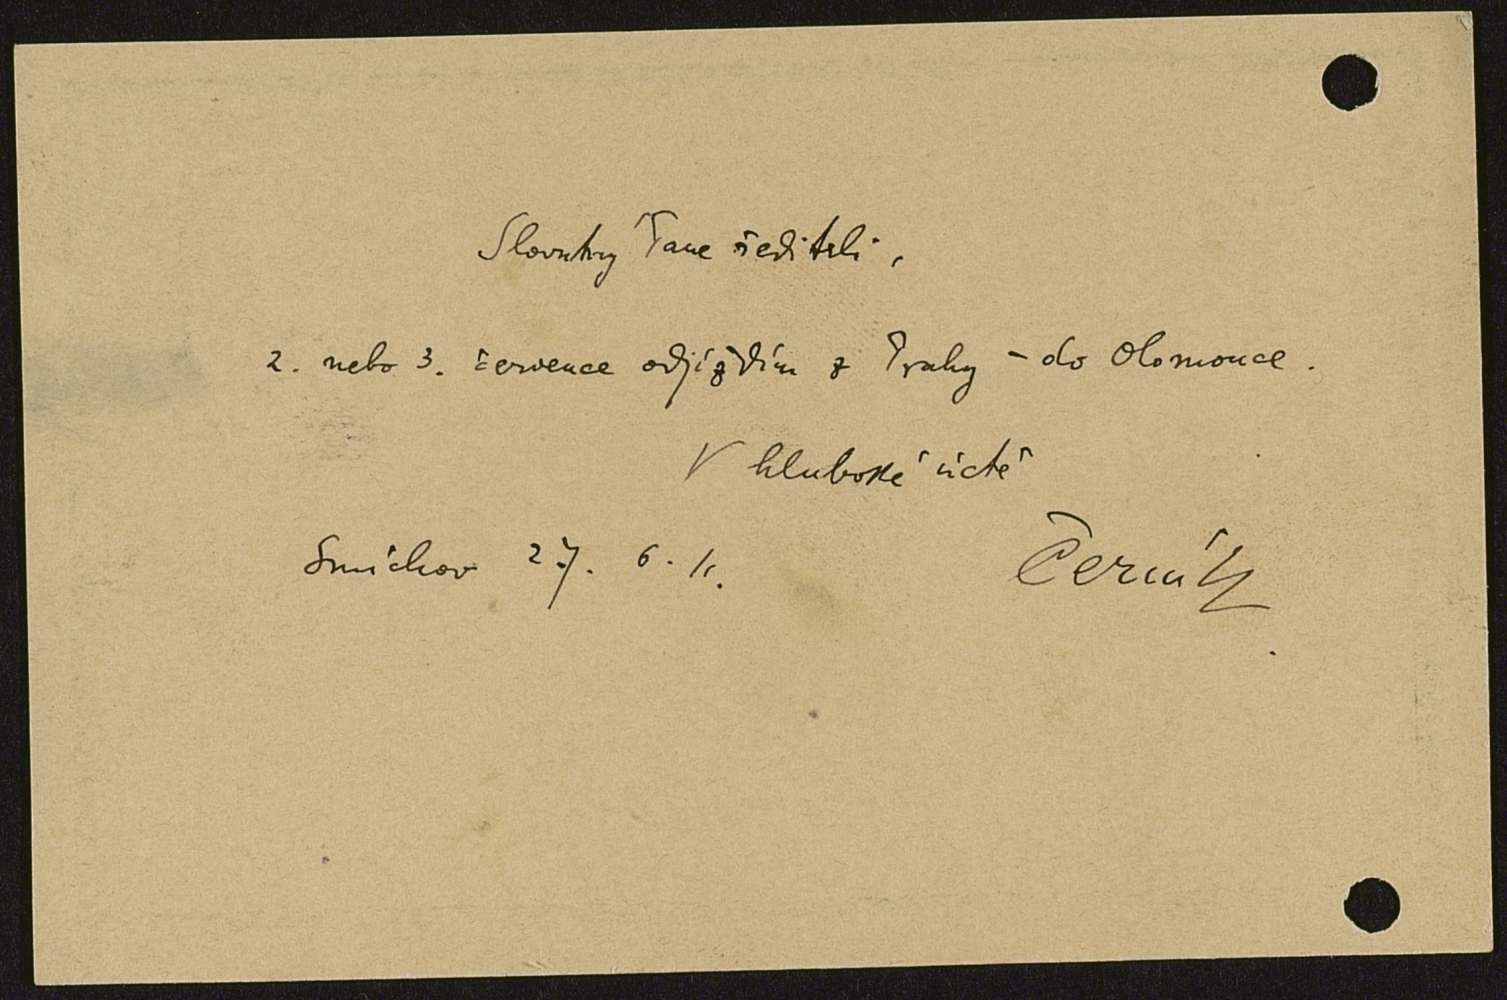 Slovutný Pane řediteli,
2. nebo 3. července odjíždím z Prahy – do Olomouce.
V hluboké úctě
Smíchov 27. 6. 11.
Černý